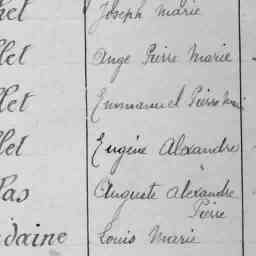 het Joseph Marie
let Ange Pierre Marie
let Emmanuel Pierre Marie
let Eugène Alexandre
las Auguste Alexandre
Pierre
daine Louis Marie